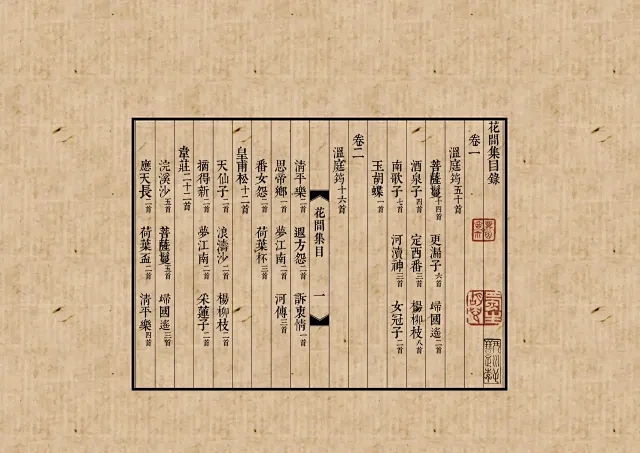 花間集目錄
卷一
溫庭筠五十首
菩薩鬘十四首 更漏子六首 歸國遙二首
酒泉子四首 定西番三首 楊柳枝八首
南歌子七首 河瀆神三首 女冠子二首
玉胡蝶一首
卷二
溫庭筠十六首
花間集目 一
清平樂二首 遐方怨二首 訴衷情一首
思帝鄉一首 夢江南二首 河傳三首
番女怨二首 荷葉杯三首
皇甫松十二首
天仙子二首 浪濤沙二首 楊柳枝二首
摘得新二首 夢江南二首 采蓮子二首
韋莊二十二首
浣溪沙五首 菩薩鬘五首 歸國遙三首
應天長二首 荷葉盃二首 清平樂四首